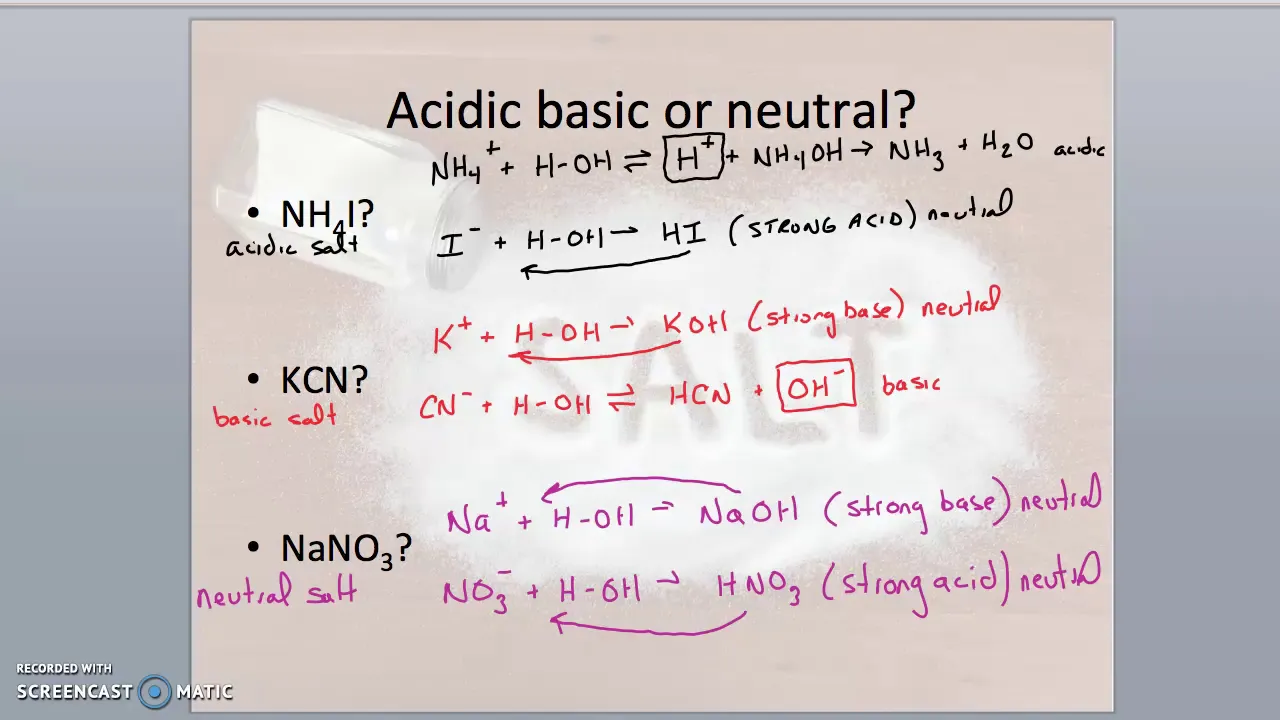 Acidic basic or neutral?
NH₄⁺ + H-OH ⇌ H⁺ + NH₄OH → NH₃ + H₂O acidic
• NH₄I?
acidic salt
I⁻ + H-OH → HI (STRONG ACID) neutral
K⁺ + H-OH → KOH (strong base) neutral
• KCN?
basic salt
CN⁻ + H-OH ⇌ HCN + OH⁻ basic
Na⁺ + H-OH → NaOH (strong base) neutral
• NaNO₃?
neutral salt
NO₃⁻ + H-OH → HNO₃ (strong acid) neutral
SALT
RECORDED WITH
SCREENCAST MATIC